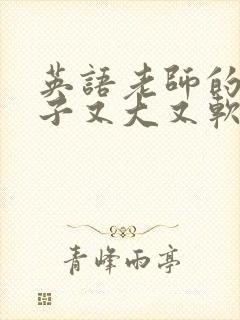 英語老師的
子又大又軟
青峰雨亭